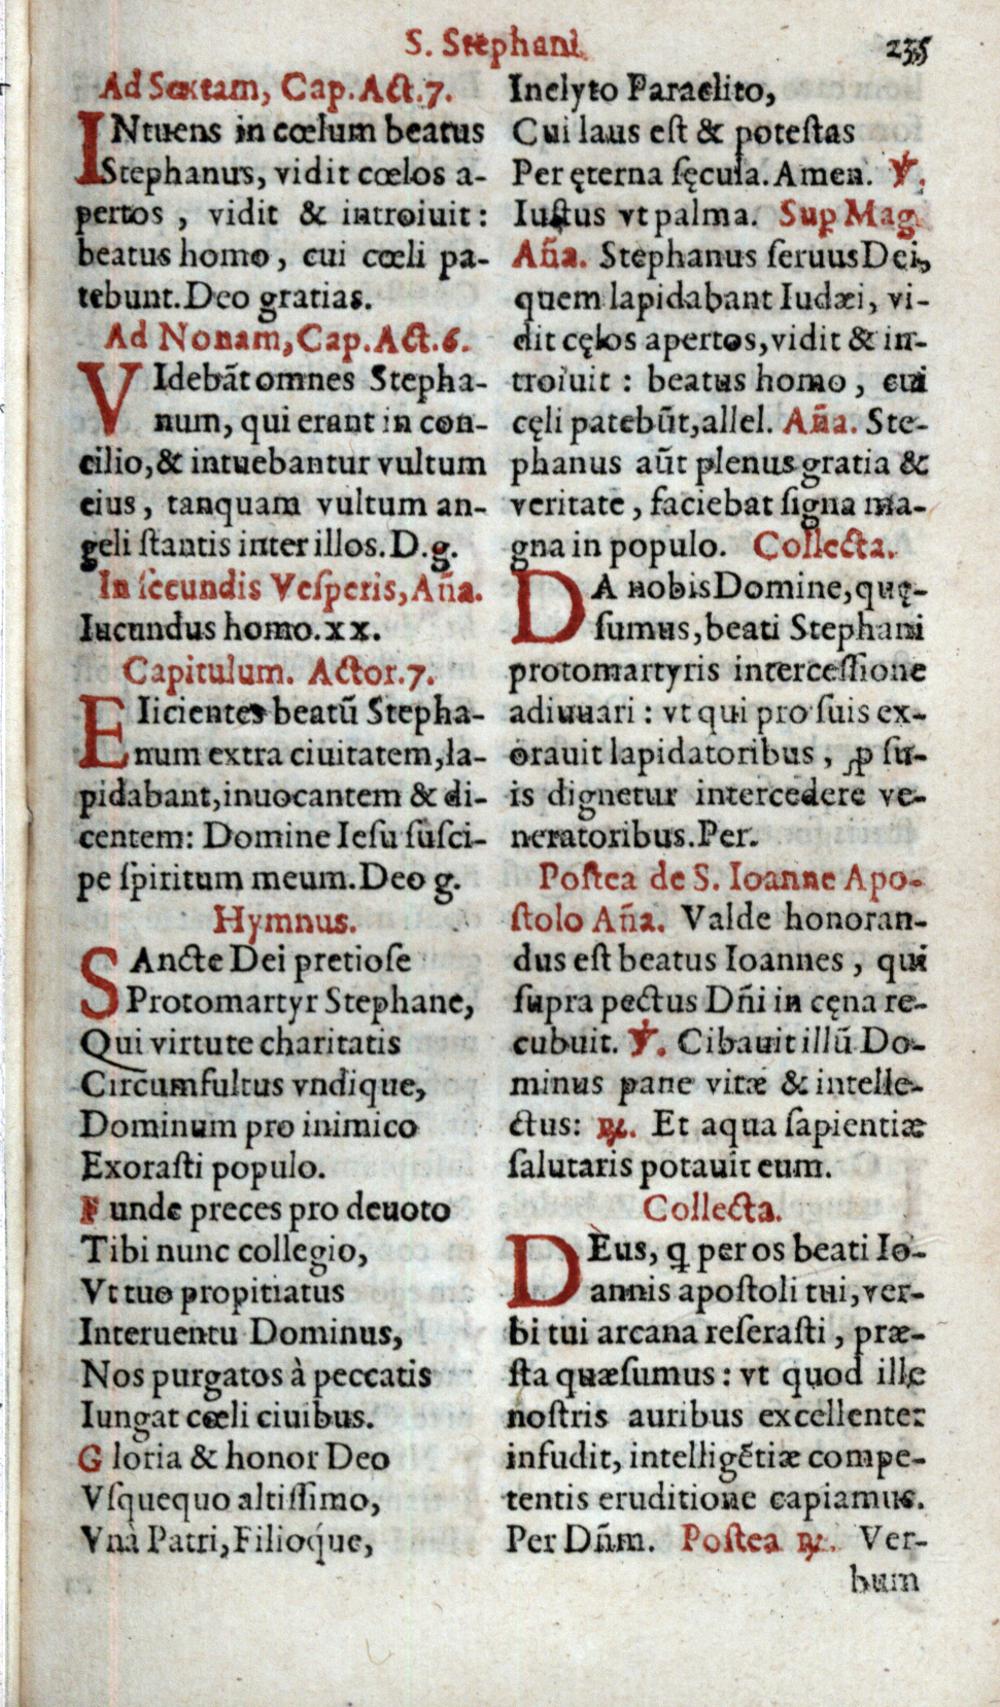 S. Stephani 235
Ad Sextam, Cap. Act. 7.
INtuens in cœlum beatus
Stephanus, vidit cœlos a-
pertos, vidit & introiuit:
beatus homo, cui cœli pa-
tebunt. Deo gratias.
Ad Nonam, Cap. Act. 6.
VIdebãt omnes Stepha-
num, qui erant in con-
cilio, & intuebantur vultum
eius, tanquam vultum an-
geli ſtantis inter illos. D. g.
In ſecundis Veſperis, Añа.
Iucundus homo. xx.
Capitulum. Actor. 7.
EIicientes beatũ Stepha-
num extra ciuitatem, la-
pidabant, inuocantem & di-
centem: Domine Ieſu ſuſci-
pe ſpiritum meum. Deo g.
Hymnus.
SAncte Dei pretioſe
Protomartyr Stephane,
Qui virtute charitatis
Circumfultus vndique,
Dominum pro inimico
Exoraſti populo.
Funde preces pro deuoto
Tibi nunc collegio,
Vt tuo propitiatus
Interuentu Dominus,
Nos purgatos à peccatis
Iungat cœli ciuibus.
Gloria & honor Deo
Vſquequo altiſſimo,
Vnà Patri, Filioq́ue,
Inclyto Paraclito,
Cui laus eſt & poteſtas
Per ęterna ſęcula. Amen. ℣.
Iuſtus vt palma. Sup Mag.
Aña. Stephanus ſeruus Dei,
quem lapidabant Iudæi, vi-
dit cęlos apertos, vidit & in-
troiuit: beatus homo, cui
cęli patebũt, allel. Aña. Ste-
phanus aũt plenus gratia &
veritate, faciebat ſigna ma-
gna in populo. Collecta.
DA nobis Domine, quę-
ſumus, beati Stephani
protomartyris interceſſione
adiuuari: vt qui pro ſuis ex-
orauit lapidatoribus, ꝓ ſu-
is dignetur intercedere ve-
neratoribus. Per.
Poſtea de S. Ioanne Apo-
ſtolo Aña. Valde honoran-
dus eſt beatus Ioannes, qui
ſupra pectus Dñi in cęna re-
cubuit. ℣. Cibauit illũ Do-
minus pane vitæ & intelle-
ctus: ℟. Et aqua ſapientiæ
ſalutaris potauit eum.
Collecta.
DEus, q per os beati Io-
annis apoſtoli tui, ver-
bi tui arcana reſeraſti, præ-
ſta quæſumus: vt quod ille
noſtris auribus excellenter
infudit, intelligẽtiæ compe-
tentis eruditione capiamus.
Per Dñm. Poſtea ℟. Ver-
bum